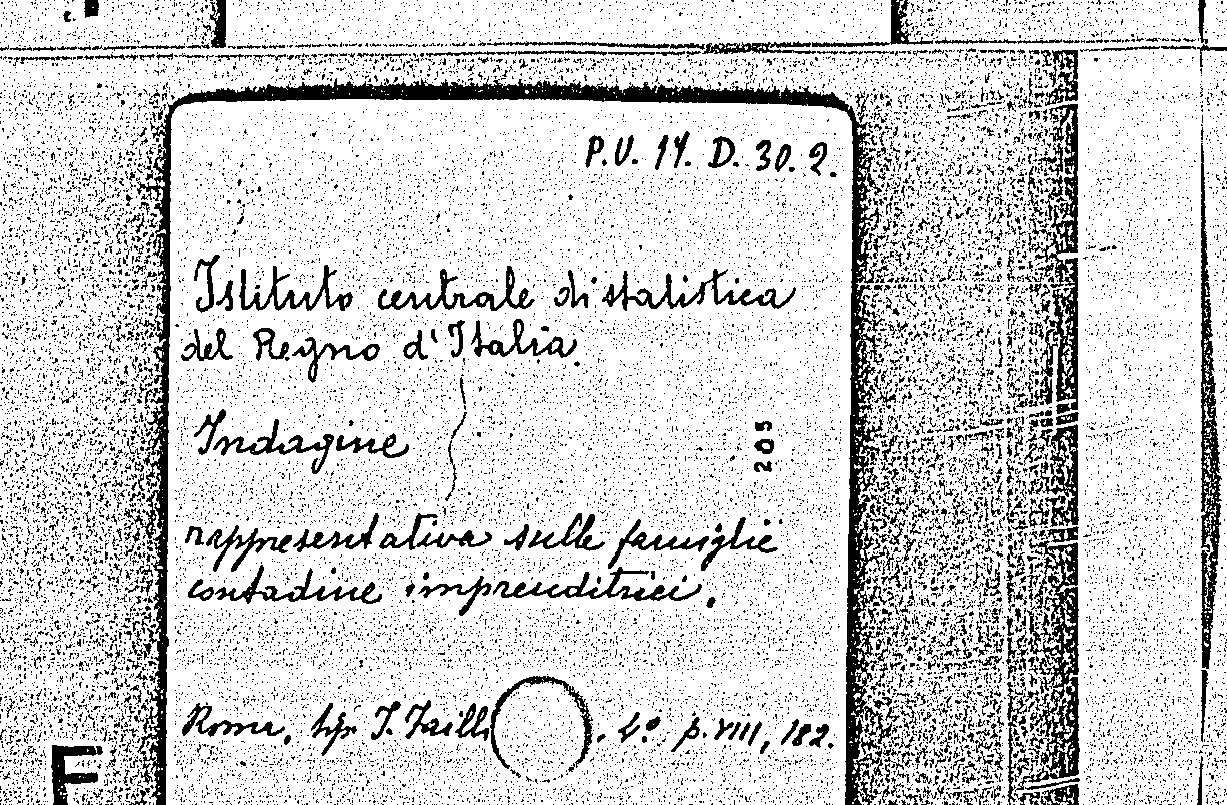 P.V. 14. D. 30. 2.
Istituto centrale di statistica
del Regno d'Italia.
Indagine
205
rappresentativa sulle famiglie
contadine imprenditrici.
Roma, tip. I. Failli
. 4º. p. VIII, 182.
E